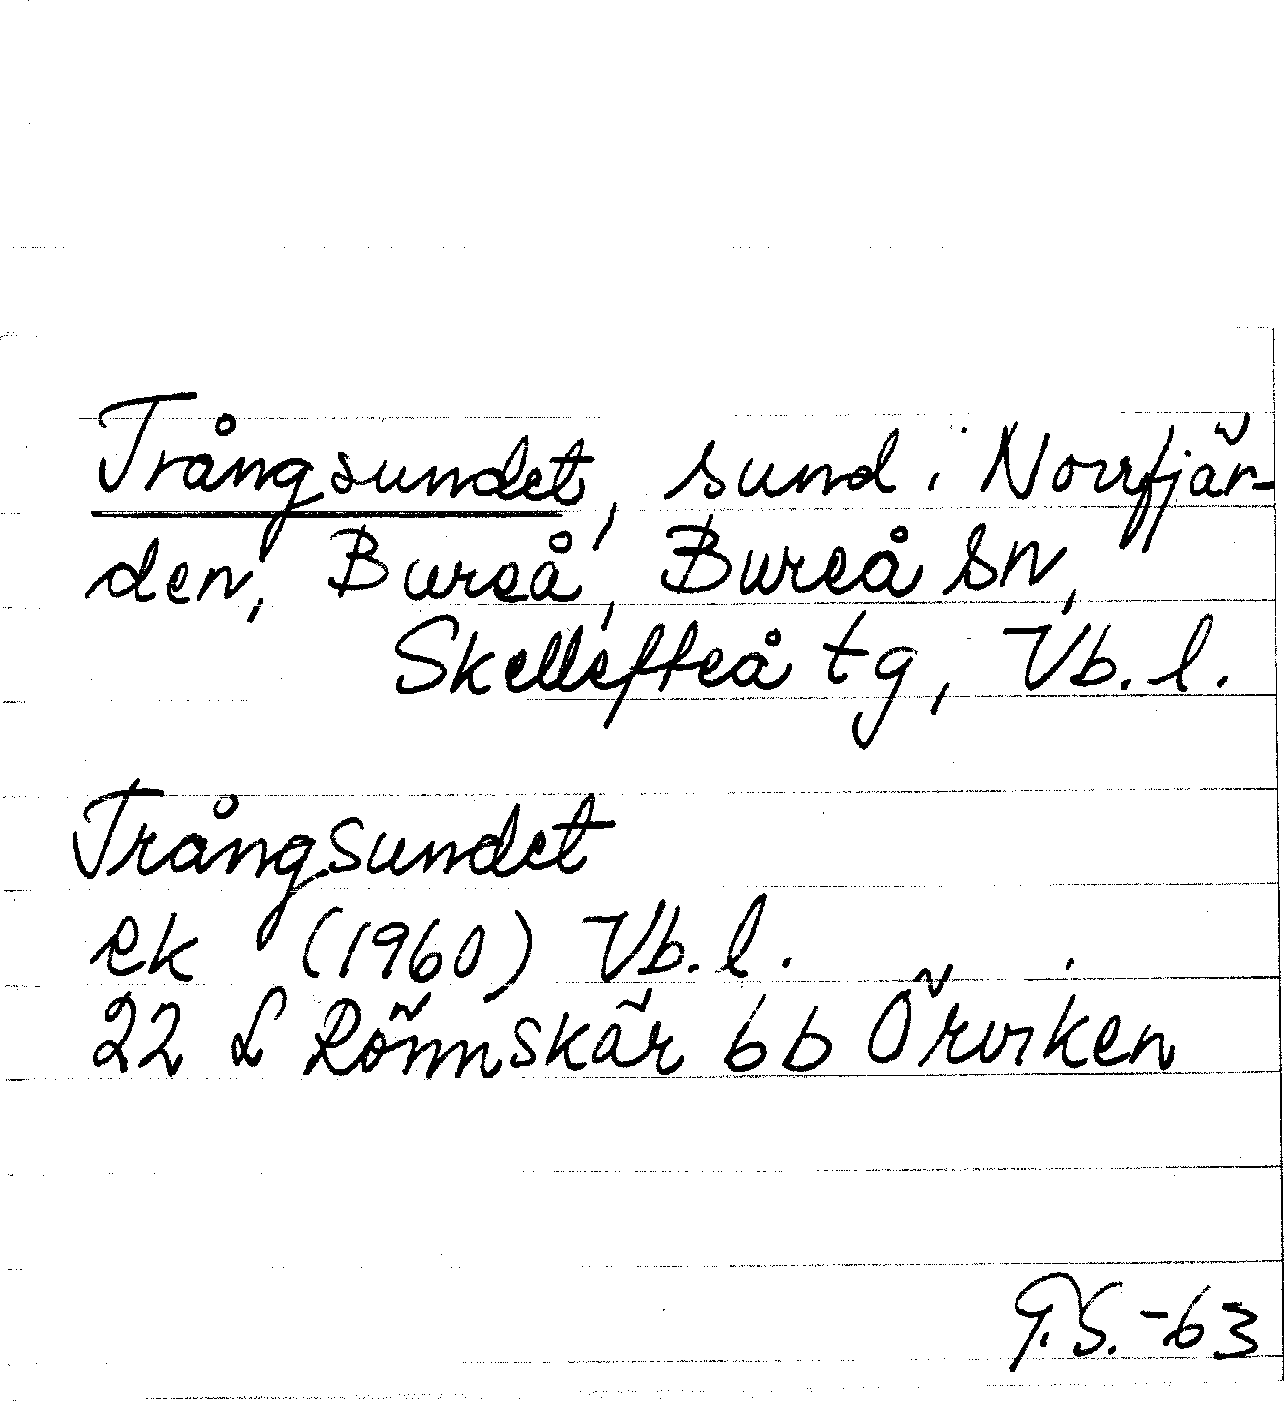 Trångsundet, sund i Norrfjär-
den, Bureå, Bureå sn,
Skellefteå tg, Vb. l.
Trångsundet
ek (1960) Vb. l.
22 L Rönnskär 6b Örviken
G.S. -63